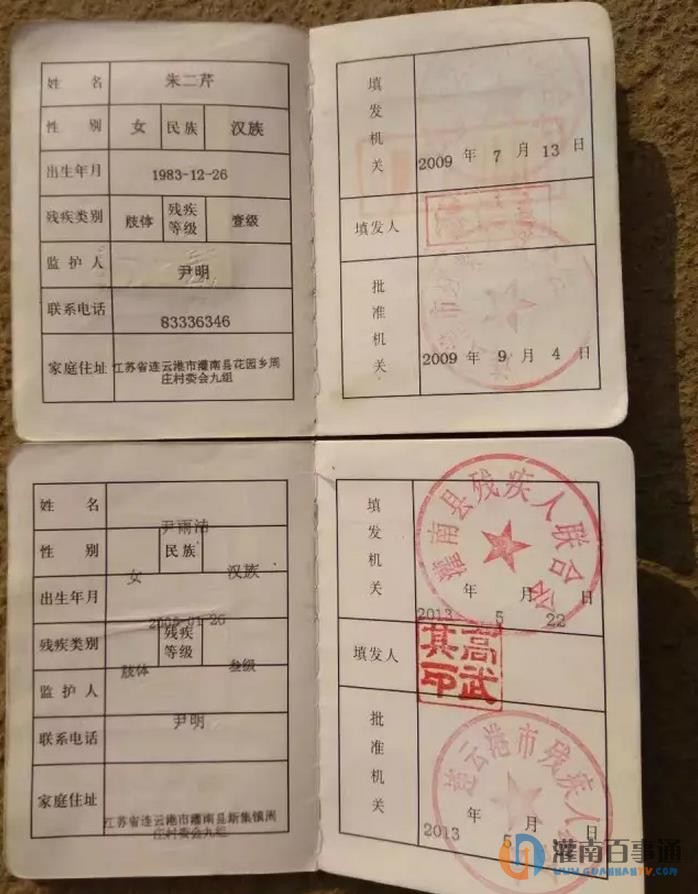 姓 名 朱二芹
性 别 女 民族 汉族
出生年月 1983-12-26
残疾类别 肢体 残疾等级 壹级
监 护 人 尹明
联系电话 83336346
家庭住址 江苏省连云港市灌南县花园乡周
庄村委会九组
填发机关
2009 年 7 月 13 日
填发人
批准机关
2009 年 9 月 4 日
姓 名
尹雨洁
性 别 民族
女 汉族
出生年月
残疾类别 残疾等级
肢体 叁级
监 护 人
尹明
联系电话
家庭住址
江苏省连云港市灌南县新集镇周
庄村委会九组
填发机关
灌南县残疾人联合会
年 月 日
2013 5 22
填发人
高武其印
批准机关
连云港市残疾人
年 月 日
2013 5
灌南百事通
WWW.GUANNANTV.COM